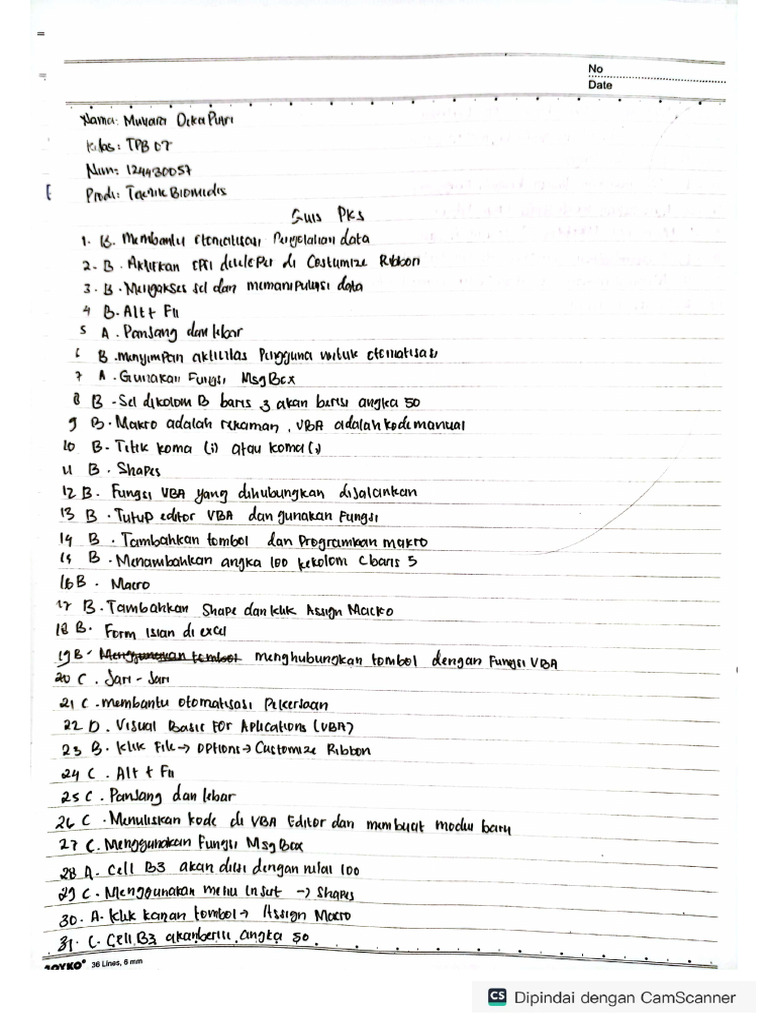 No
Date
Nama: Mutiara Octa Putri
Kelas: TPB 07
Nim: 124430057
Prodi: Teknik Biomedis
Kuis PKS
1. B. Membantu otomatisasi Pengolahan data
2. B. Aktifkan opsi developer di Costumize Ribbon
3. B. Mengakses sel dan memanipulasi data
4 B. Alt + F11
5 A. Panjang dan lebar
6 B. menyimpan aktivitas Pengguna untuk otomatisasi
7 A. Gunakan Fungsi MsgBox
8 B. Sel dikolom B baris 3 akan berisi angka 50
9 B. Makro adalah rekaman, VBA adalah kode manual
10 B. Titik koma (;) atau koma (,)
11 B. Shapes
12 B. Fungsi VBA yang dihubungkan dijalankan
13 B. Tutup editor VBA dan gunakan Fungsi
14 B. Tambahkan tombol dan Programkan makro
15 B. Menambahkan angka 100 kekolom C baris 5
16 B. Macro
17 B. Tambahkan Shape dan klik Assign Macro
18 B. Form isian di excel
19 B. menghubungkan tombol dengan Fungsi VBA
20 C. Jari - Jari
21 C. membantu otomatisasi Pekerjaan
22 D. Visual Basic For Aplications (VBA)
23 B. Klik File → Options → Customize Ribbon
24 C. Alt + F11
25 C. Panjang dan lebar
26 C. Menuliskan kode di VBA Editor dan membuat modul baru
27 C. Menggunakan Fungsi MsgBox
28 A. Cell B3 akan diisi dengan nilai 100
29 C. Menggunakan menu Insert → Shapes
30. A. Klik kanan tombol → Assign Macro
31. C. Cell B3 akan berisi angka 50
JOYKO® 36 Lines, 6 mm
CS Dipindai dengan CamScanner